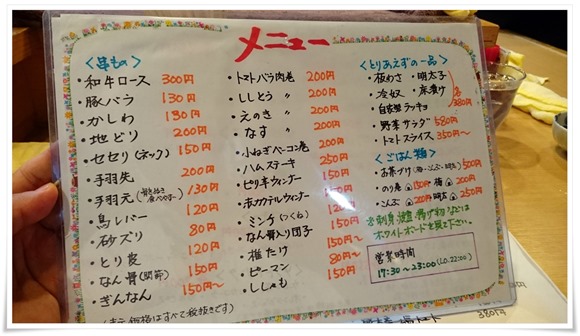 メニュー
<串もの>
・和牛ロース 300円
・豚バラ 130円
・かしわ 130円
・地どり 200円
・セセリ(ネック) 150円
・手羽先 200円
・手羽元 130円
・鳥レバー 120円
・砂ズリ 80円
・とり皮 120円
・なん骨(関節) 150円
・ぎんなん 150円~
・トマトバラ肉巻 200円
・ししとう 〃 200円
・えのき 〃 200円
・なす 〃 200円
・小ねぎベーコン巻 200円
・ハムステーキ 250円
・ピリ辛ウィンナー 150円
・ホッカテルウィンナー 150円
・ミンチ(つくね) 150円
・なん骨入り団子 150円
・椎たけ 80円~
・ピーマン 150円
・ししゃも 150円
<とりあえずの一品>
・板わさ ・明太子
・冷奴
・自家製ラッキョ
各380円
・野菜サラダ 580円
・トマトスライス 350円~
<ごはん類>
・お茶づけ(梅・こんぶ・明太) 500円
・のり巻 150円 ・梅 200円
・こんぶ 200円 明太 250円
☆刺身、鍋、揚げ物などは
ホワイトボードを見て下さい。
営業時間
17:30~23:00(L.O.22:00)
価格はすべて税抜きです)
380円